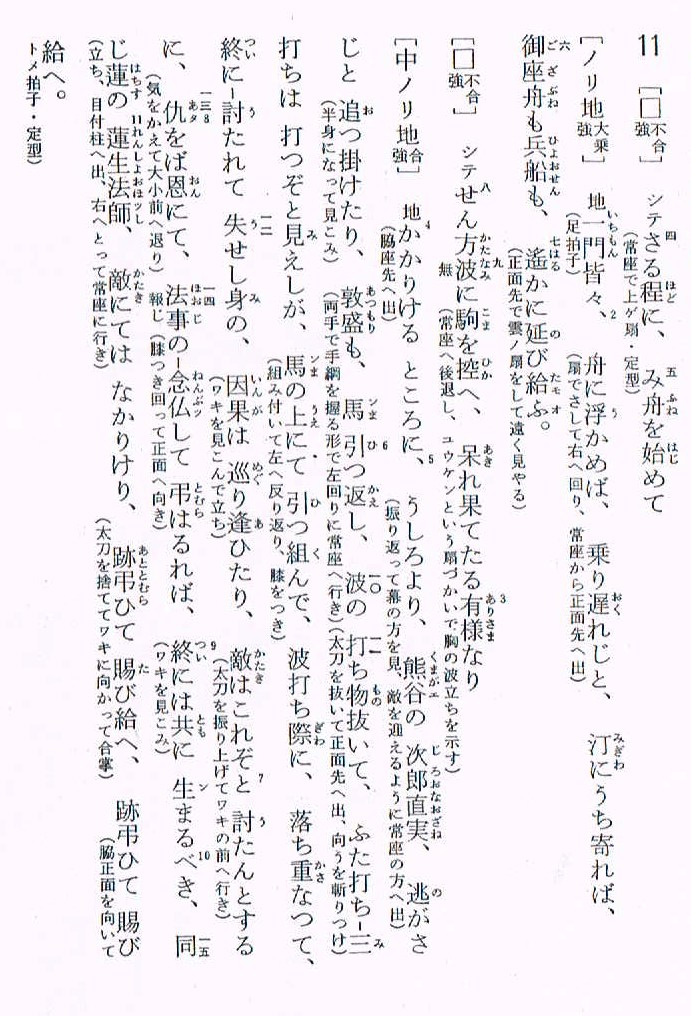 11 [□不合強] シテさる程に、み舟を始めて
(常座で上ゲ扇・定型)
[ノリ地大乗強] 地一門皆々、舟に浮かめば、乗り遅れじと、汀にうち寄れば、
(足拍子) (扇でさして右へ回り、常座から正面先へ出)
御座舟も兵船も、遙かに延び給ふ。
(正面先で雲ノ扇をして遠く見やる)
[□不合強] シテせん方波に駒を控へ、呆れ果てたる有様なり
無 (常座へ後退し、ユウケンという扇づかいで胸の波立ちを示す)
[中ノリ地合強] 地かかりける ところに、うしろより、熊谷の 次郎直実、逃がさ
(脇座先へ出) (振り返って幕の方を見、敵を迎えるように常座の方へ出)
じと 追つ掛けたり、敦盛も、馬 引つ返し、波の 打ち物抜いて、ふた打ち‐三
(半身になって見こみ) (両手で手綱を握る形で左回りに常座へ行き) (太刀を抜いて正面先へ出、向うを斬りつけ)
打ちは 打つぞと見えしが、馬の上にて 引つ組んで、波打ち際に、落ち重なつて、
(組み付いて左へ反り返り、膝をつき)
終に‐討たれて 失せし身の、因果は 巡り逢ひたり、敵はこれぞと 討たんとする
(ワキを見こんで立ち) (太刀を振り上げてワキの前へ行き)
に、仇をば恩にて、法事の‐念仏して 弔はるれば、終には共に 生まるべき、同
(気をかえて大小前へ退り) 報じ (膝つき回って正面へ向き) (ワキを見こみ)
じ蓮の 蓮生法師、敵にては なかりけり、跡弔ひて 賜び給へ、跡弔ひて 賜び
(立ち、目付柱へ出、右へとって常座に行き) (太刀を捨ててワキに向かって合掌) (脇正面を向いて
給へ。
トメ拍子・定型)